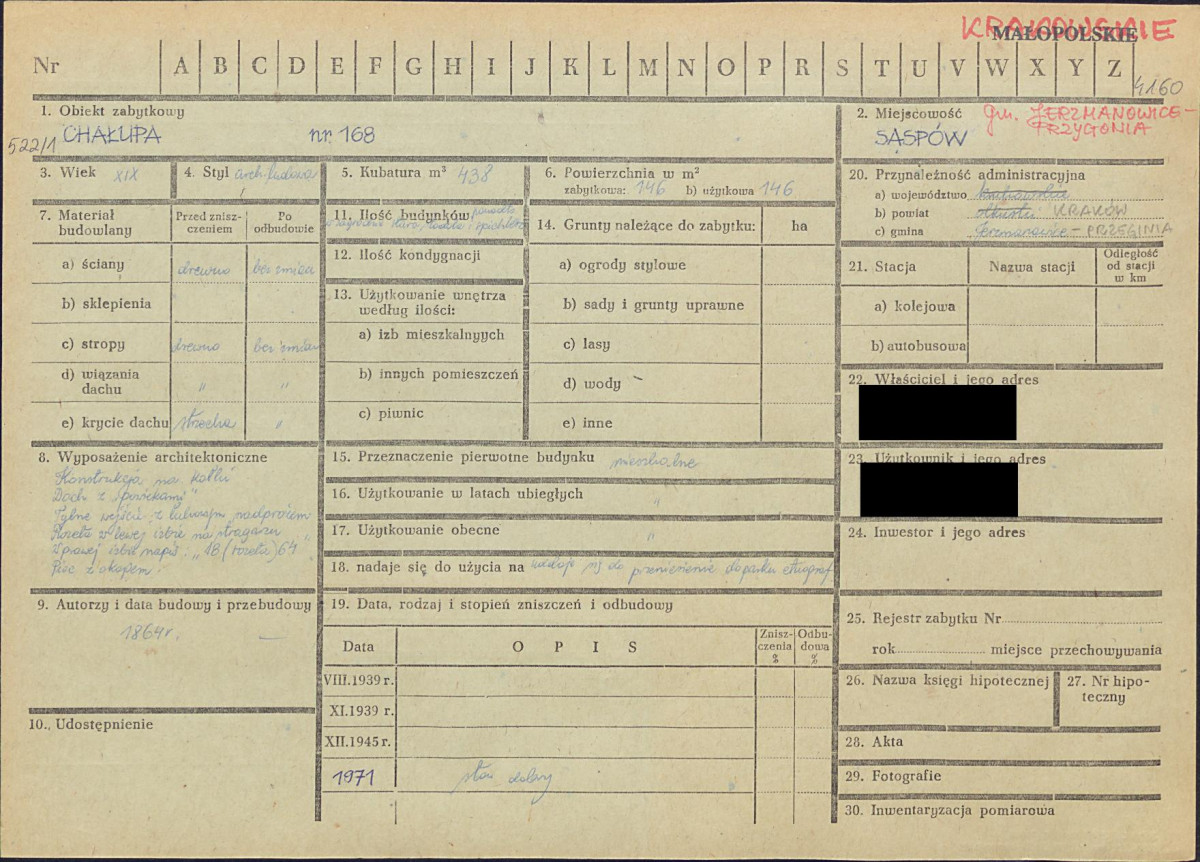 KRAKOWSKIE
MAŁOPOLSKIE
Nr A B C D E F G H I J K L M N O P R S T U V W X Y Z
4160
1. Obiekt zabytkowy
CHAŁUPA nr 168
522/1
2. Miejscowość
gm. JERZMANOWICE-
PRZYGONIA
SĄSPÓW
3. Wiek XIX
4. Styl arch. ludowa
5. Kubatura m³ 438
6. Powierzchnia w m²
zabytkowa: 146 b) użytkowa 146
20. Przynależność administracyjna
a) województwo krakowskie
b) powiat olkuski KRAKÓW
c) gmina Jerzmanowice - PRZEGINIA
7. Materiał
budowlany
Przed znisz-
czeniem
Po
odbudowie
a) ściany drewno bez zmian
b) sklepienia
c) stropy drewno bez zmian
d) wiązania
dachu " "
e) krycie dachu strzecha "
11. Ilość budynków
12. Ilość kondygnacji
13. Użytkowanie wnętrza
według ilości:
a) izb mieszkalnyych
b) innych pomieszczeń
c) piwnic
14. Grunty należące do zabytku: ha
a) ogrody stylowe
b) sady i grunty uprawne
c) lasy
d) wody
e) inne
21. Stacja Nazwa stacji
Odległość
od stacji
w km
a) kolejowa
b) autobusowa
22. Właściciel i jego adres
23. Użytkownik i jego adres
24. Inwestor i jego adres
8. Wyposażenie architektoniczne
Konstrukcja na
Dach z
Tylne wejście z nadprożem
Rozeta w lewej izbie na stragarzu
W prawej izbie napis: „18 (rozeta) 64"
Piec z okapem
15. Przeznaczenie pierwotne budynku mieszkalne
16. Użytkowanie w latach ubiegłych "
17. Użytkowanie obecne "
18. nadaje się do użycia na nadaje się do przeniesienia do parku etnograf
9. Autorzy i data budowy i przebudowy
1864 r. —
10. Udostępnienie
19. Data, rodzaj i stopień zniszczeń i odbudowy
Data OPIS
Znisz-
czenia
%
Odbu-
dowa
%
VIII.1939 r.
XI.1939 r.
XII.1945 r.
1971 stan dobry
25. Rejestr zabytku Nr
rok miejsce przechowywania
26. Nazwa księgi hipotecznej
27. Nr hipo-
teczny
28. Akta
29. Fotografie
30. Inwentaryzacja pomiarowa